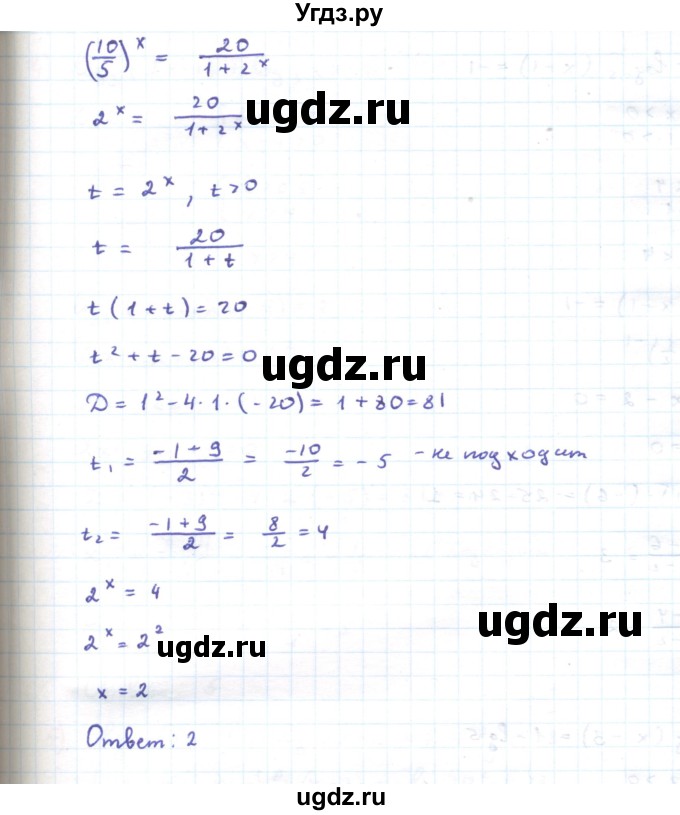 Угдз.ру
(10/5)^x = 20/(1 + 2^x)
2^x = 20/(1 + 2^x)
ugdz.ru
t = 2^x, t > 0
t = 20/(1 + t)
t (1 + t) = 20
t² + t - 20 = 0
ugdz.ru
D = 1² - 4 · 1 · (-20) = 1 + 80 = 81
t₁ = (-1 - 9)/2 = -10/2 = -5 - не подходит
t₂ = (-1 + 9)/2 = 8/2 = 4
2^x = 4
ugdz.ru
2^x = 2²
ugdz.ru
x = 2
Ответ: 2
ugdz.ru